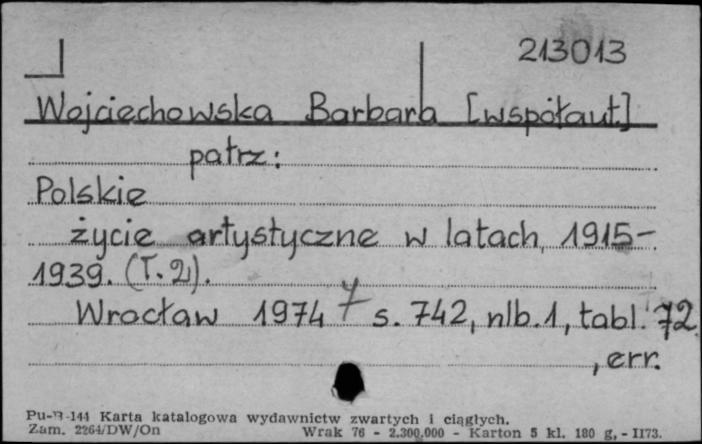 213013
Wojciechowska Barbara [współaut]
patrz:
Polskie
życie artystyczne w latach 1915-
1939. (T. 2).
Wrocław 1974 s. 742, nlb. 1, tabl. 72
, err.
Pu-B-144 Karta katalogowa wydawnictw zwartych i ciągłych.
Zam. 2264/DW/On Wrak 76 - 2.300.000 - Karton 5 kl. 180 g, - II73.